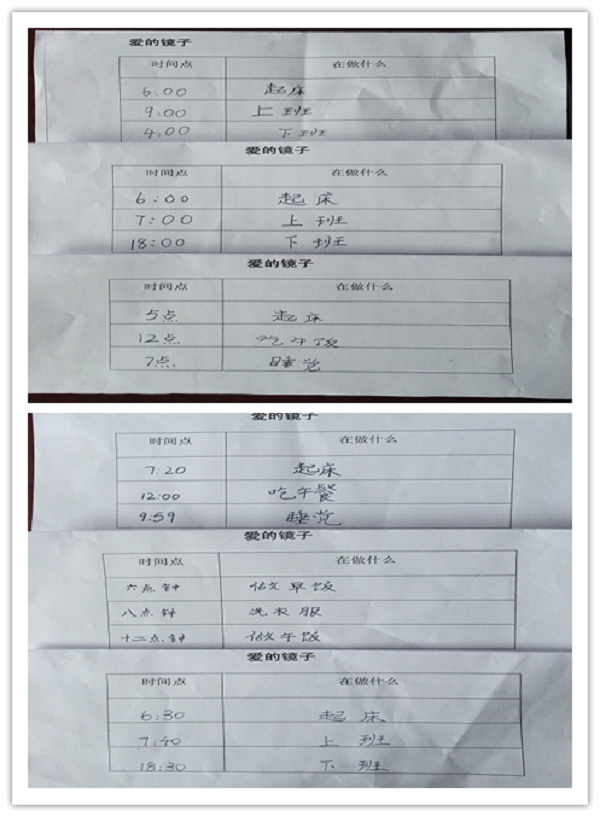 爱的镜子
时间点 在做什么
6:00 起床
9:00 上班
4:00 下班
爱的镜子
时间点 在做什么
6:00 起床
7:00 上班
18:00 下班
爱的镜子
时间点 在做什么
5点 起床
12点 吃午饭
7点 睡觉
爱的镜子
时间点 在做什么
7:20 起床
12:00 吃午餐
9:59 睡觉
爱的镜子
时间点 在做什么
六点钟 做早饭
八点钟 洗衣服
十二点钟 做午饭
爱的镜子
时间点 在做什么
6:30 起床
7:40 上班
18:30 下班